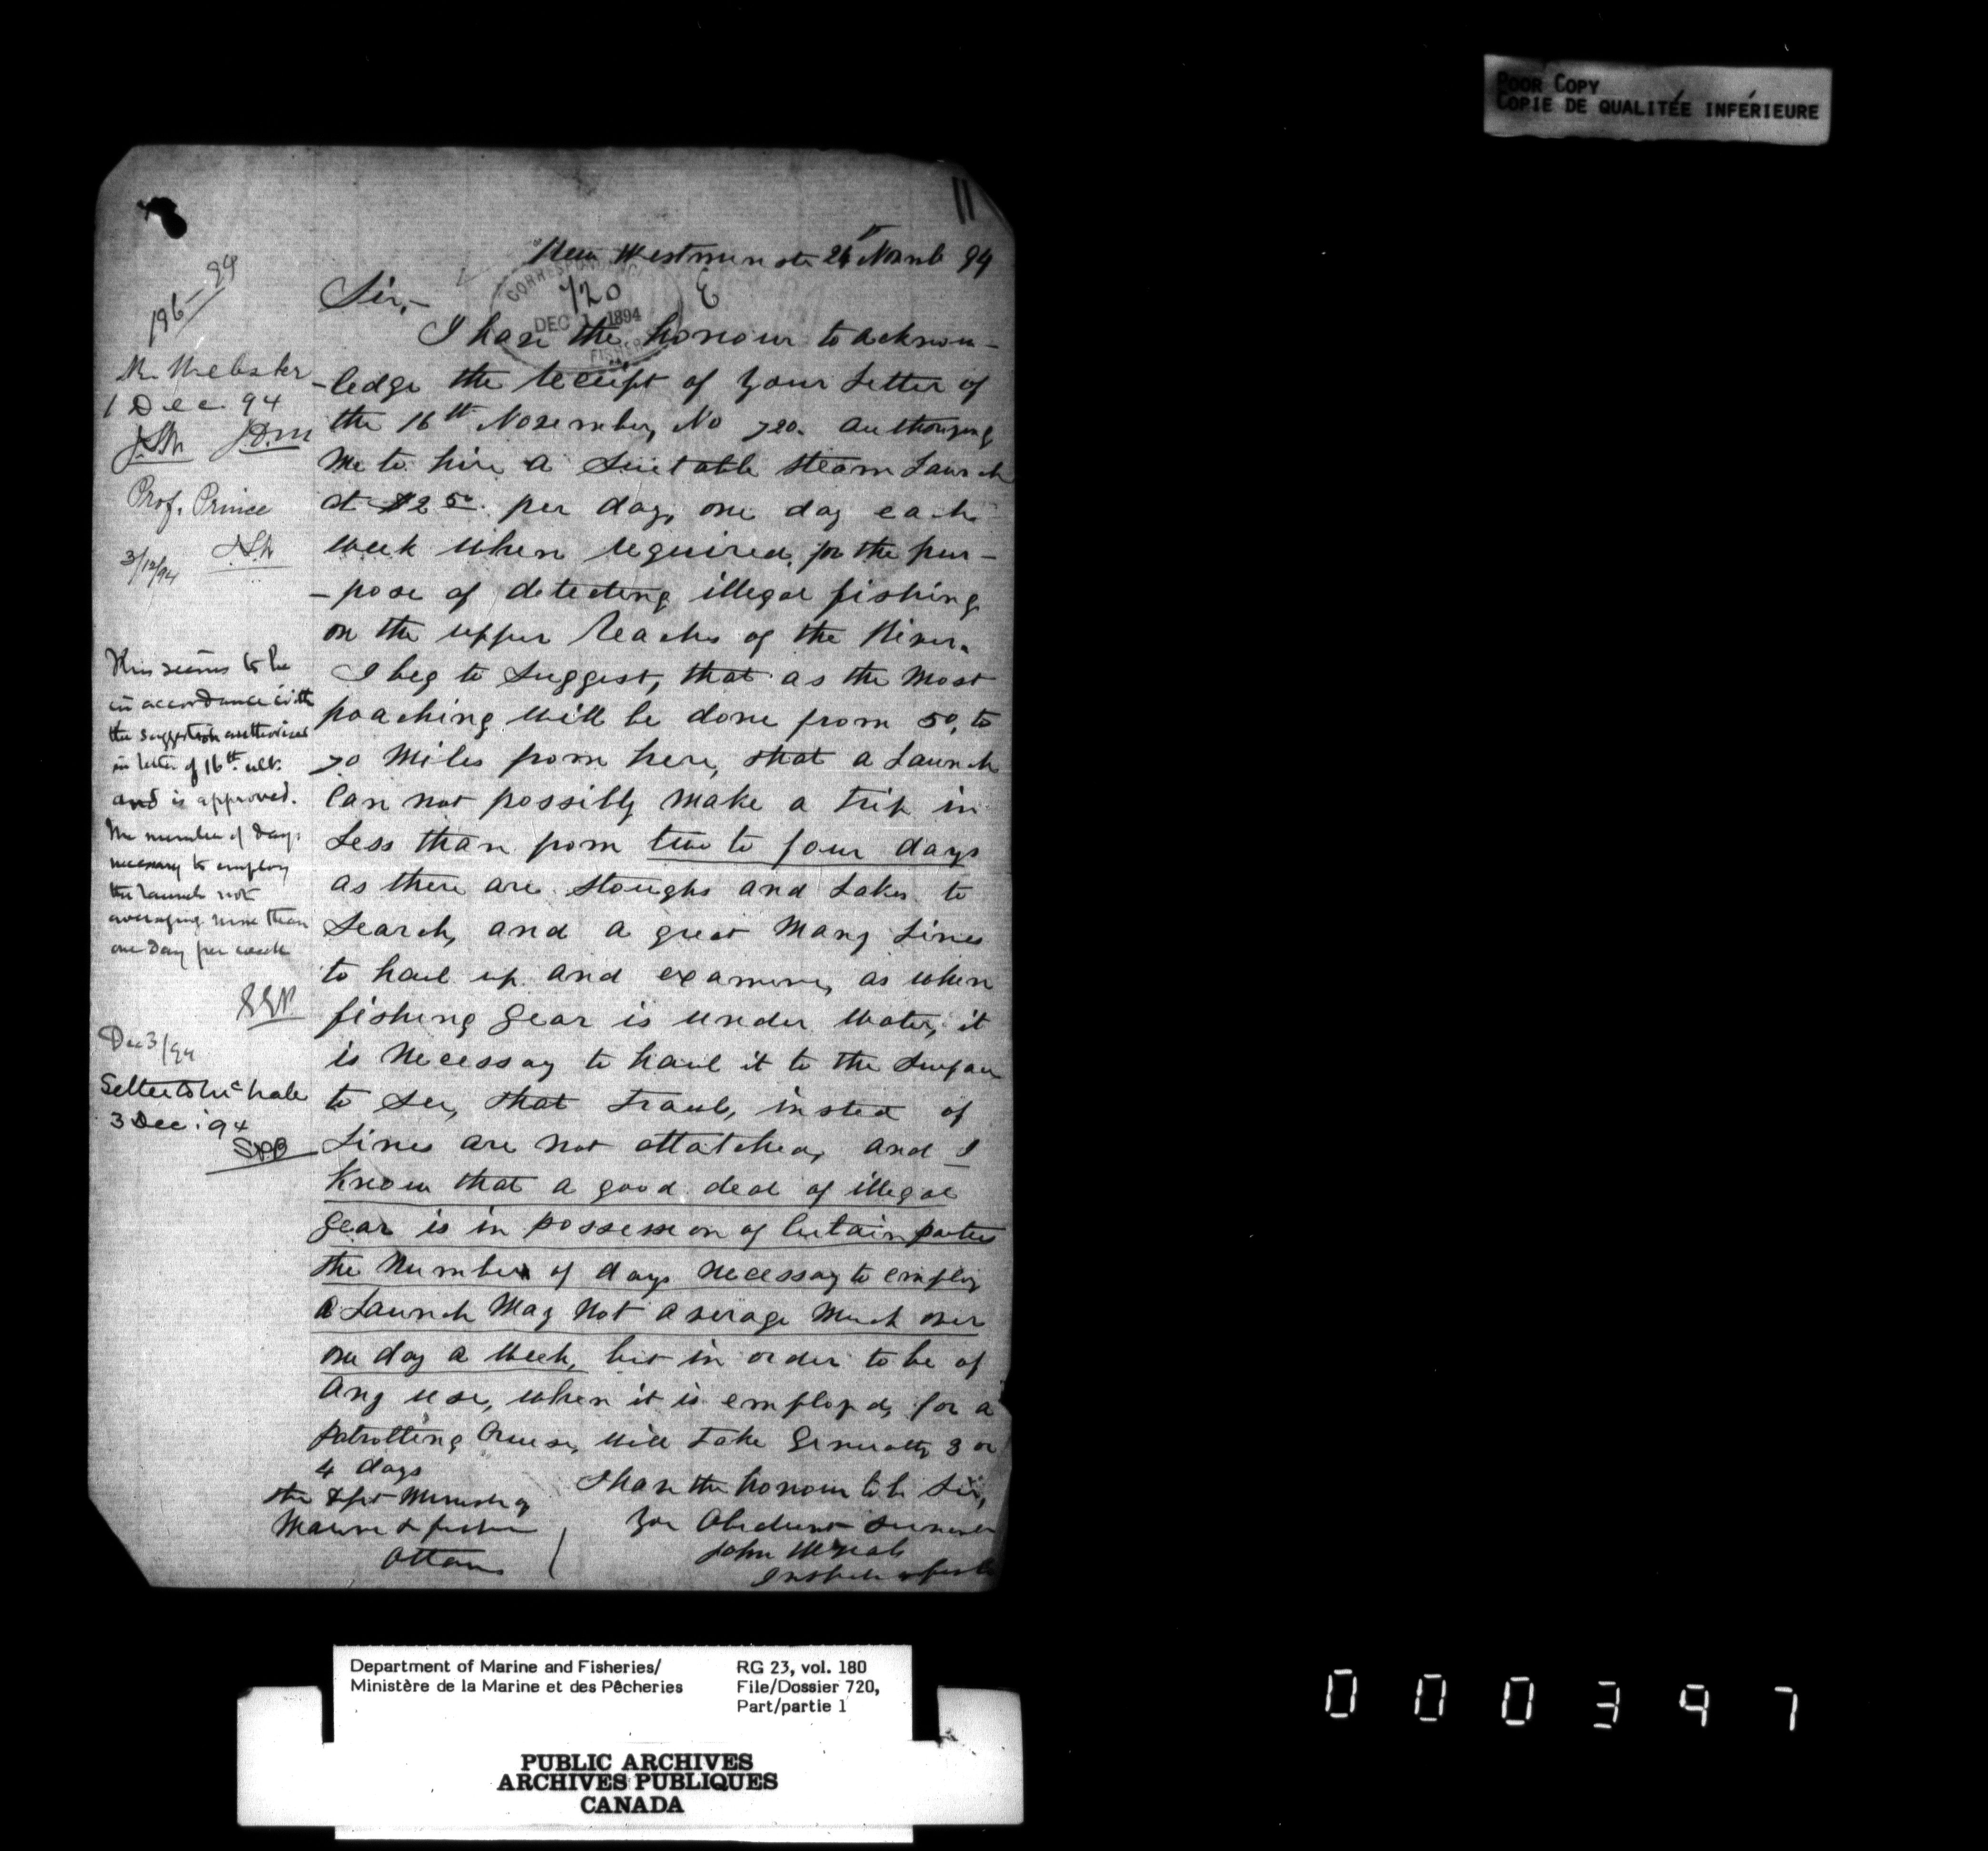 POOR COPY
COPIE DE QUALITÉE INFÉRIEURE
11
New Westminster 24th Novemb 94
CORRESPONDENCE
720
DEC 1 1894
FISHERIES
E
Sir,-
I have the honour to acknow-
-ledge the receipt of your Letter of
the 16th November, No 720. authorizing
me to hire a Suitable steam Launch
at $2 50. per day, one day each
week when required, for the pur-
-pose of detecting illegal fishing
on the upper Reaches of the River.
I beg to Suggest, that as the Most
poaching will be done from 50, to
70 Miles from here, that a Launch
Can not possibly Make a trip in
Less than from two to four days
as there are Sloughs and Lakes to
Search, and a great Many Lines
to haul up and examine, as when
fishing Gear is under Water, it
is Necessay to haul it to the Surface
to See, that Trauls, insted of
Lines are not attatched, and I
Know that a good deal of illegal
Gear is in possession of Certain parties
the Number of days necessay to employ
a Launch May Not average Much over
one day a Week, but in order to be of
any use, when it is employd, for a
patrolling Cruise, will take Generally 3 or
4 days
I have the honour to be Sir,
Your Obedient Servant
John McNab
Inspector of fisheries
the Dept Minister of
Marine & fisheries
Ottawa
196/94
Mr Webster
1 Dec. 94
Prof. Prince
3/12/94
This seems to be
in accordance with
the suggestion authorised
in letter of 16th. ult.
and is approved.
The number of days
necessary to employ
the launch not
averaging more than
one day per week
EEP
Dec 3/94
Letter to McNab
3 Dec. 94
Department of Marine and Fisheries/
Ministère de la Marine et des Pêcheries
RG 23, vol. 180
File/Dossier 720,
Part/partie 1
PUBLIC ARCHIVES
ARCHIVES PUBLIQUES
CANADA
000397